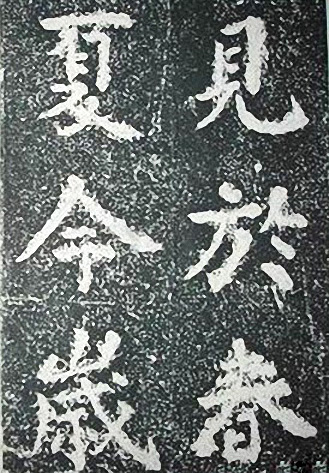 見於春
夏今歲